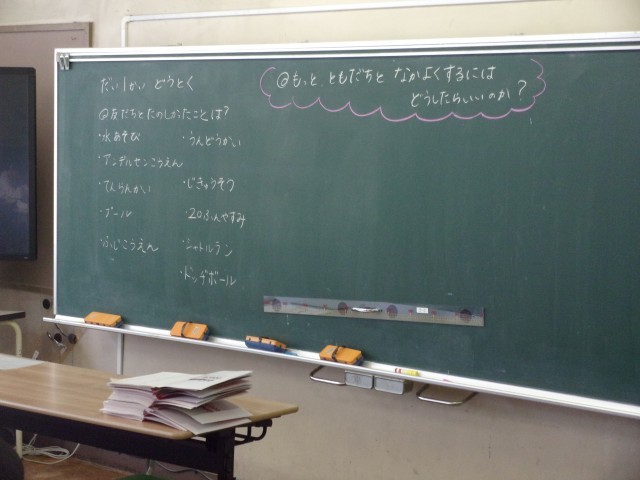 だい1かい どうとく
@友だちとたのしかったことは?
・水あそび
・アンデルセンこうえん
・てんらんかい
・プール
・ふじこうえん
・うんどうかい
・じきゅうそう
・20ふんやすみ
・シャトルラン
・ドッヂボール
@もっと ともだちと なかよくするには
どうしたらいいのか?